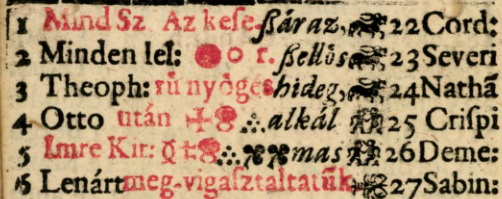 1 Mind Sz Az keſe. ſzáraz, 22 Cord:
2 Minden lel: r. ſzellös 23 Severi
3 Theoph: rü nyögés hideg, 24 Nathã
4 Otto után alkal 25 Criſpi
5 Imre Kir: mas 26 Deme:
6 Lenárt meg-vigaſztaltatűk 27 Sabin: